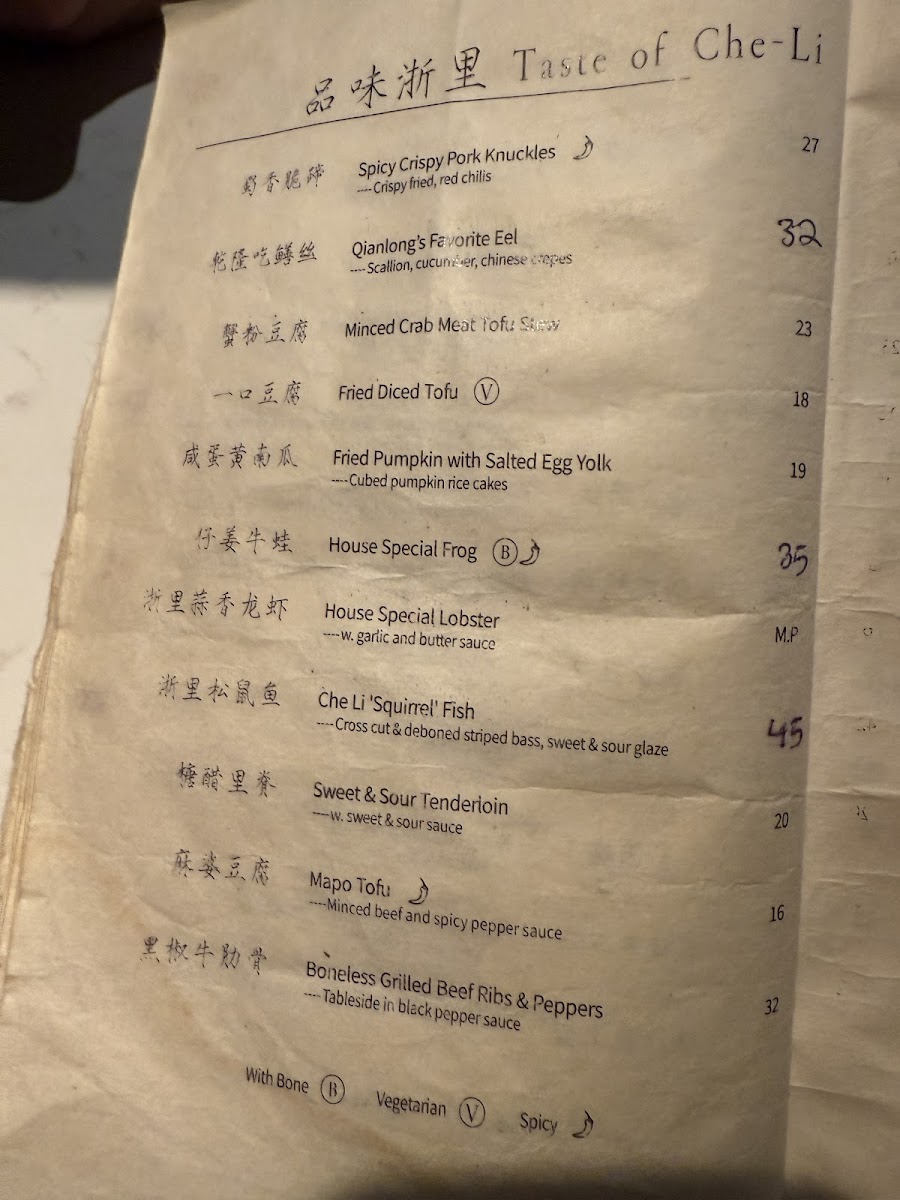 品味浙里 Taste of Che-Li
香脆蹄 Spicy Crispy Pork Knuckles 27
----Crispy fried, red chilis
乾隆吃鳝丝 Qianlong's Favorite Eel 32
----Scallion, cucumber, chinese crepes
蟹粉豆腐 Minced Crab Meat Tofu Stew 23
一口豆腐 Fried Diced Tofu Ⓥ 18
咸蛋黄南瓜 Fried Pumpkin with Salted Egg Yolk 19
----Cubed pumpkin rice cakes
仔姜牛蛙 House Special Frog Ⓑ 35
浙里蒜香龙虾 House Special Lobster M.P
----w. garlic and butter sauce
浙里松鼠鱼 Che Li 'Squirrel' Fish 45
----Cross cut & deboned striped bass, sweet & sour glaze
糖醋里脊 Sweet & Sour Tenderloin 20
----w. sweet & sour sauce
麻婆豆腐 Mapo Tofu 16
----Minced beef and spicy pepper sauce
黑椒牛肋骨 Boneless Grilled Beef Ribs & Peppers 32
----Tableside in black pepper sauce
With Bone Ⓑ Vegetarian Ⓥ Spicy